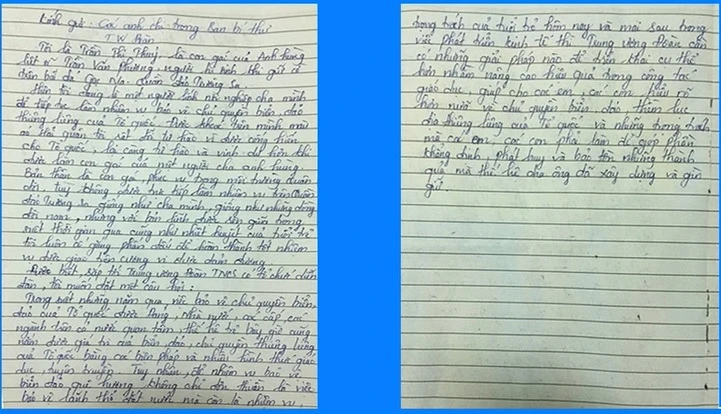 Kính gửi: Các anh chị trong Ban bí thư
T W Đoàn
Tôi là Trần Thị Thuỷ, là con gái của Anh hùng
liệt sĩ Trần Văn Phương, người hi sinh khi giữ cờ
trên bãi đá Gạc Ma. Quần đảo Trường Sa
Hiện tôi đang là một người lính nối nghiệp cha mình
để tiếp tục làm nhiệm vụ bảo vệ chủ quyền biển, đảo
thiêng liêng của Tổ quốc. Được khoác trên mình màu
áo Hải quân tôi rất đỗi tự hào vì được cống hiến
cho Tổ quốc, và càng tự hào và vinh dự hơn khi
được làm con gái của một người cha anh hùng.
Bản thân là con gái phục vụ trong môi trường quân
đội, tuy không được trực tiếp làm nhiệm vụ trên Quần
đảo Trường Sa giống như cha mình, giống như những đồng
đội nam, nhưng với bản lĩnh được rèn giũa trong
suốt thời gian qua cũng như nhiệt huyết của tuổi trẻ
tôi luôn cố gắng phấn đấu để hoàn thành tốt nhiệm
vụ được giao trên cương vị được đảm đương.
Được biết, sắp tới Trung ương Đoàn TNCS có tổ chức diễn
đàn, tôi muốn đặt một câu hỏi:
Trong suốt những năm qua, việc bảo vệ chủ quyền biển,
đảo của Tổ quốc được Đảng, Nhà nước, các cấp, các
ngành trên cả nước quan tâm, thế hệ trẻ bây giờ cũng
nắm được giá trị của biển đảo, chủ quyền thiêng liêng
của Tổ quốc bằng các biện pháp và nhiều hình thức giáo
dục, tuyên truyền. Tuy nhiên, để nhiệm vụ bảo vệ
biển đảo quê hương không chỉ đơn thuần là việc
bảo vệ lãnh thổ đất nước mà còn là nhiệm vụ,
trọng trách của tuổi trẻ hôm nay và mai sau trong
việc phát triển kinh tế thì Trung ương Đoàn cần
có những giải pháp nào để triển khai cụ thể
hơn nhằm nâng cao hiệu quả trong công tác
giáo dục, giúp cho các em, các con hiểu rõ
hơn nữa về chủ quyền biển, đảo thềm lục
địa thiêng liêng của Tổ quốc và những trọng trách
mà các em, các con phải làm để góp phần
khẳng định, phát huy và bảo tồn những thành
quả mà thế hệ cha ông đã xây dựng và gìn
giữ.